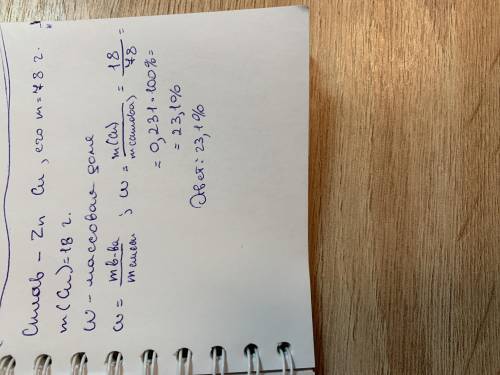 Сплав – Zn Cu, его m = 78 г.
m(Cu) = 18 г.
W – массовая доля
ω = m в-ва / m смеси ; ω = m(Cu) / m сплава = 18 / 78 =
= 0,231 · 100% =
= 23,1%
Ответ: 23,1%